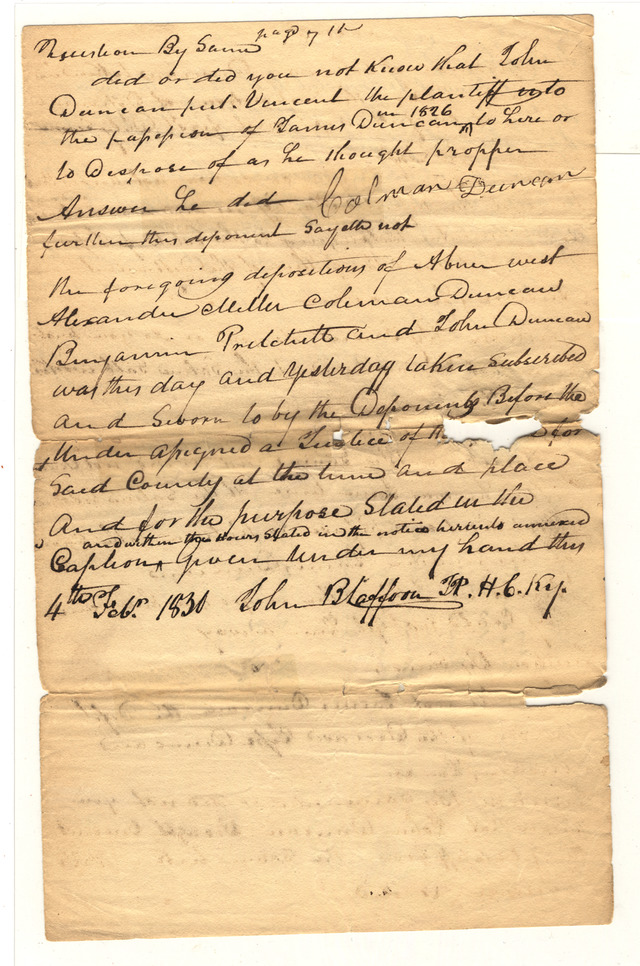 page 7th
Question By Same
did or did you not know that John
Duncan put Vincent the plantiff into
the possession of James Duncan in 1826 to hire or
to Dispose of as he thought propper
Answer he did Colman Duncan
further this deponent Sayeth not
the foregoing depositions of Abner west
Alexander Miller Coleman Duncan
Benjamin Pritchett and John Duncan
was this day and Yesterday taken Subscribed
and Sworn to by the Deponents Before the
Under assigned a Justice of the for
Said County at the time and place
And for the purpose Stated in the
and within the hours Stated in the notice hereunto annexed
Caption Given Under my hand this
4th Feb. 1830 John JP. H. C. Ky.